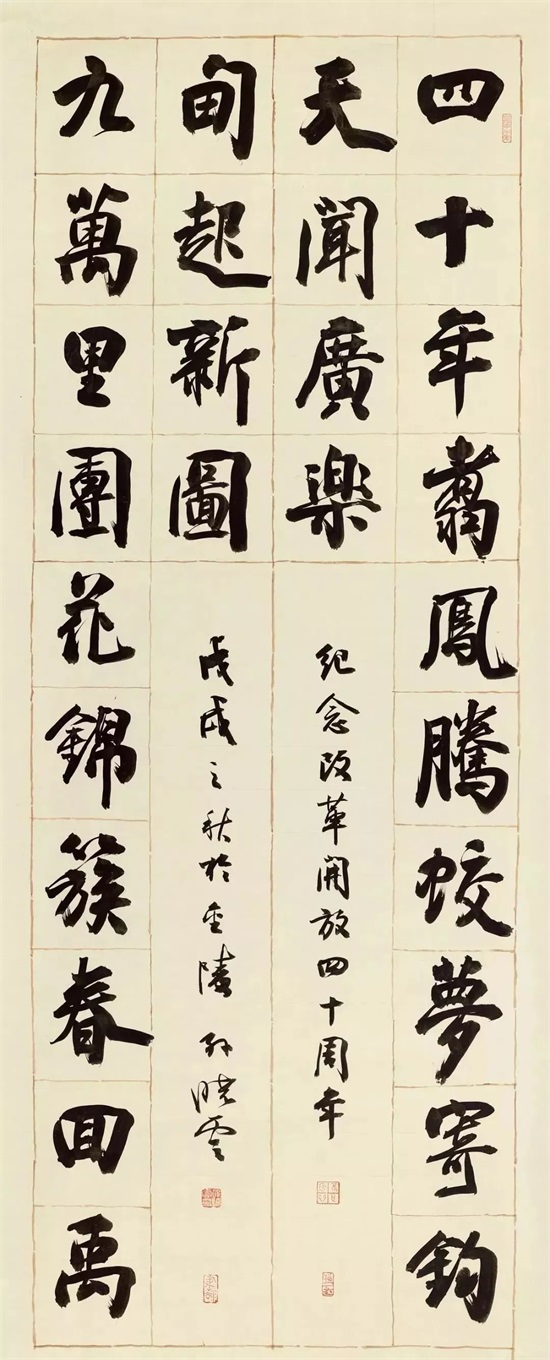 四十年翥鳳騰蛟夢寄鈞
天聞廣樂
紀念改革開放四十周年
九萬里團花錦簇春回禹
甸起新圖
戊戌之秋於金陵 孫曉雲